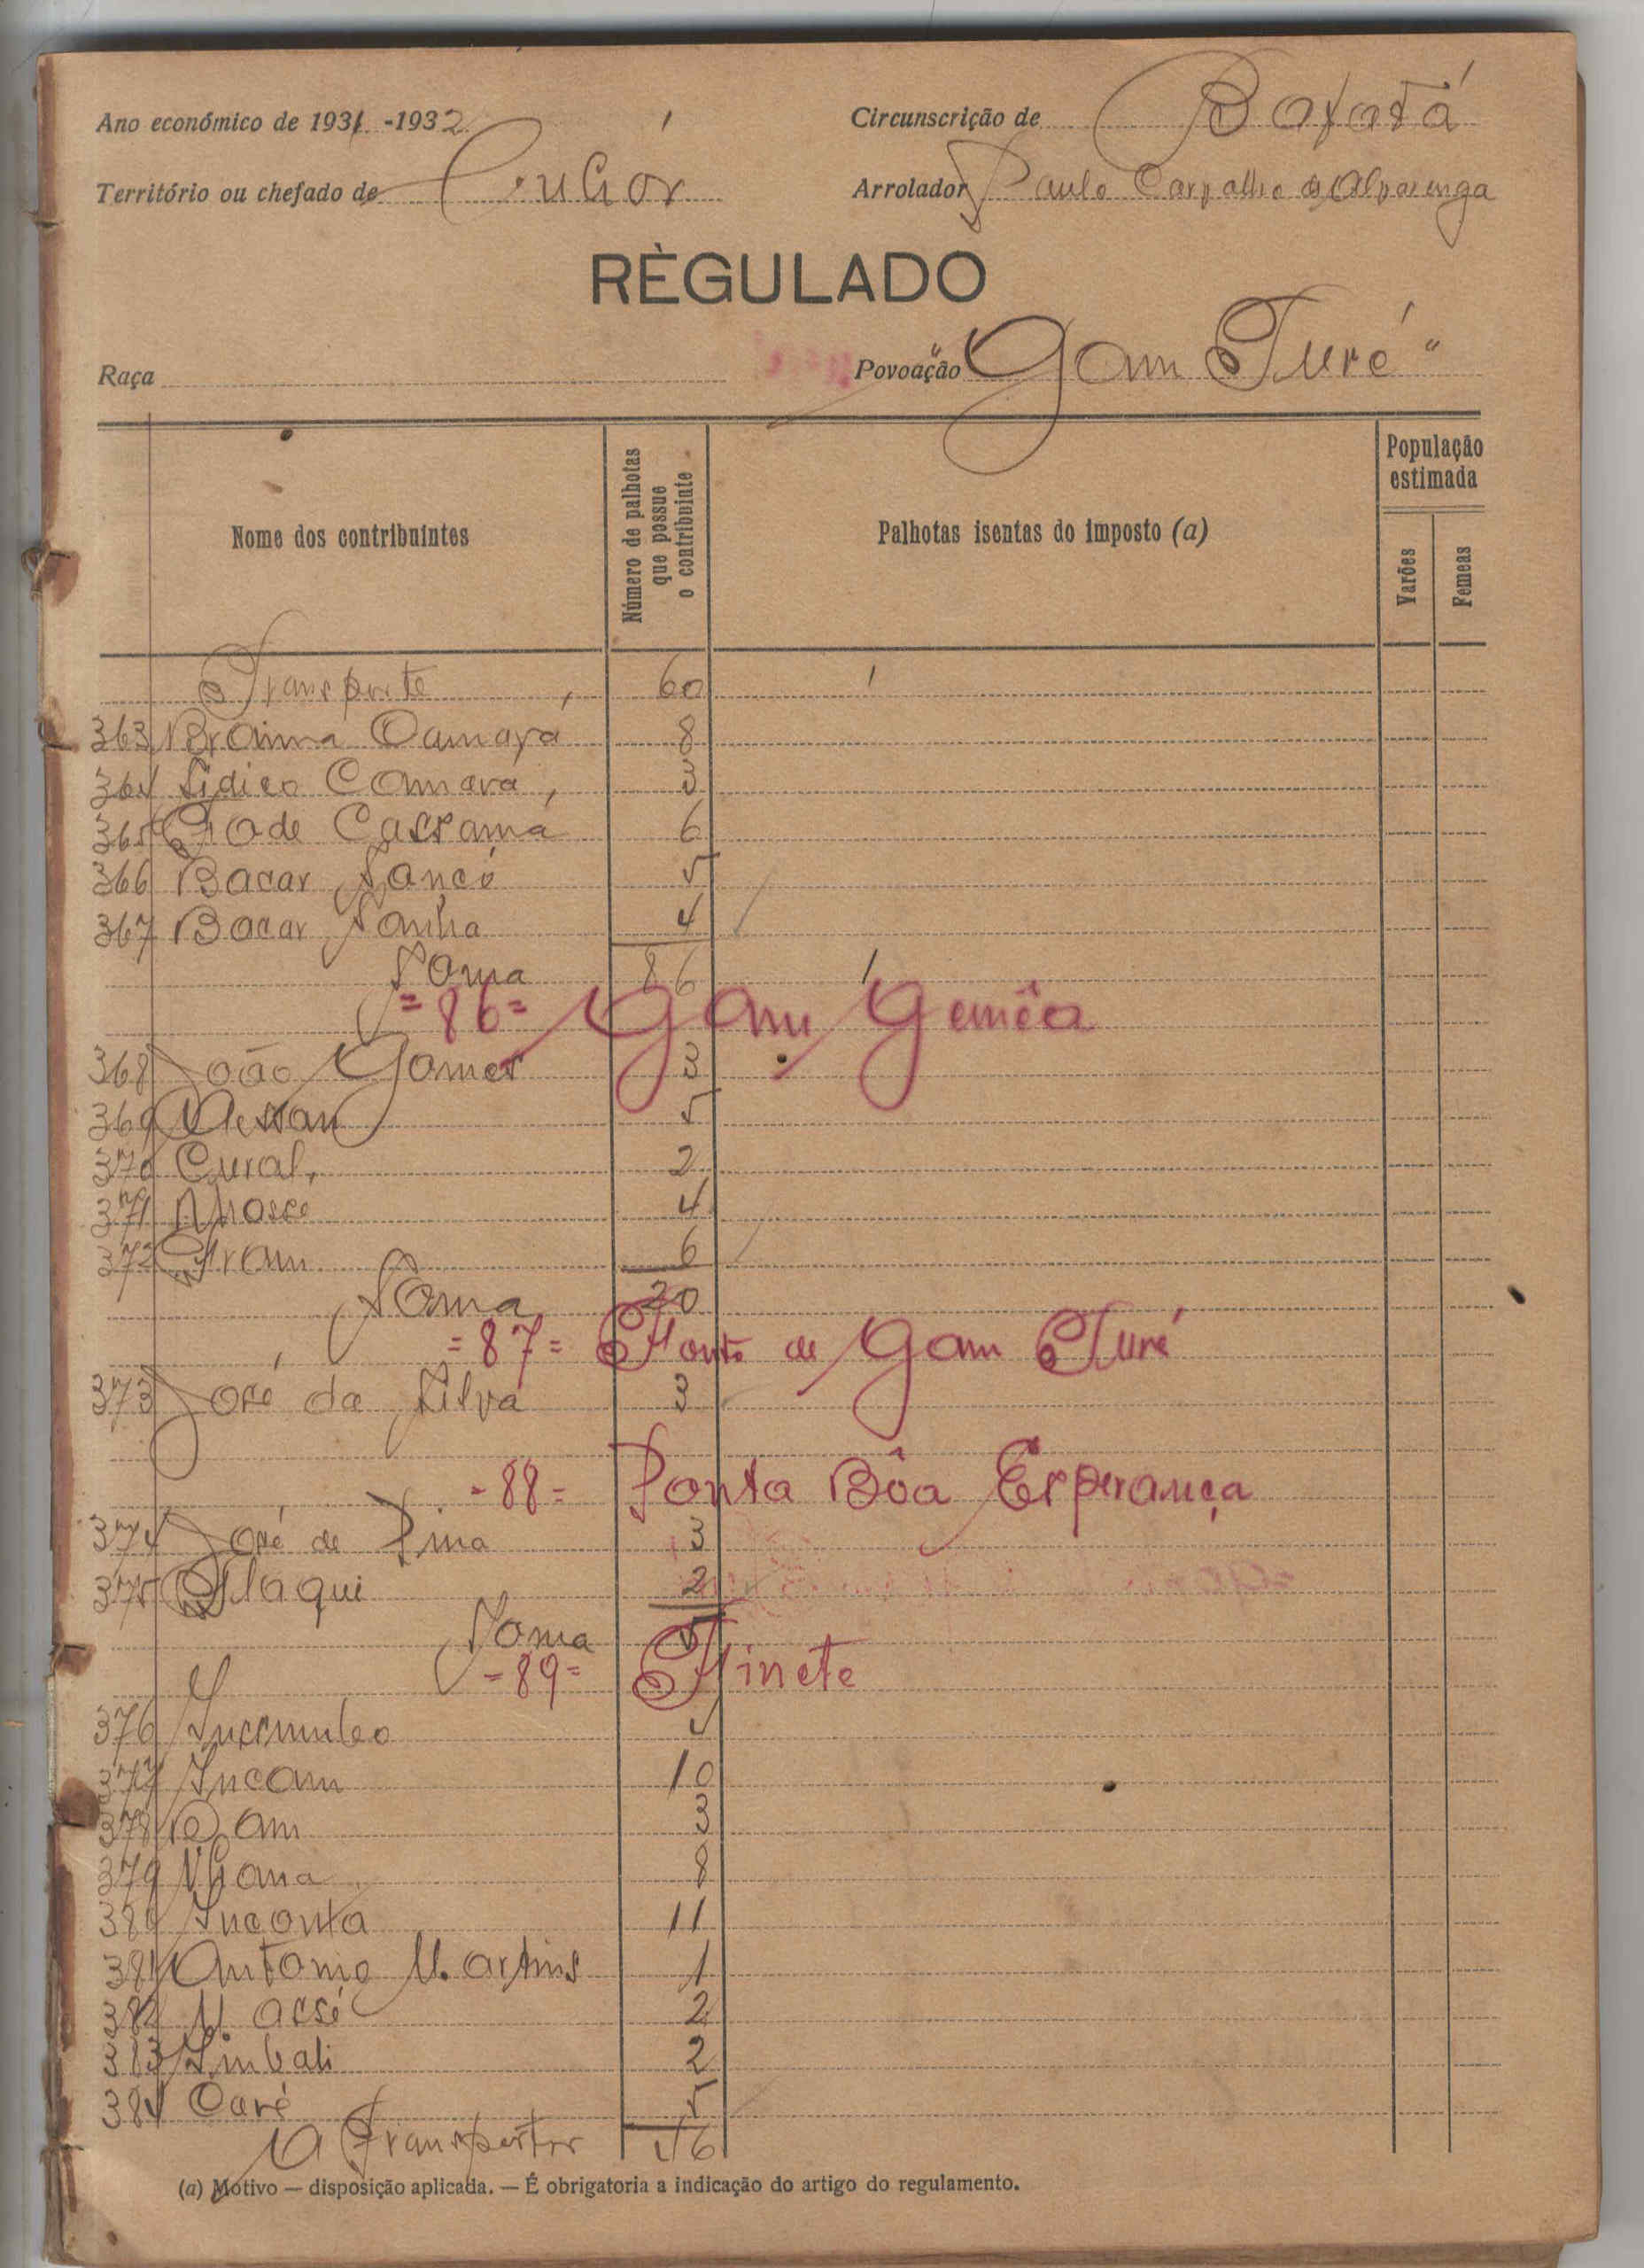 Ano económico de 1931-1932
Circunscrição de Bafatá
Território ou chefado de Cuhór
Arrolador Paulo Carvalho d'Alvarenga
RÈGULADO
Raça
Povoação "Gam Turé"
Nome dos contribuintes
Número de palhotas que possue o contribuinte
Palhotas isentas do imposto (a)
População estimada
Varões
Femeas
Transporte 60 1
363 Braima Camará 8
364 Sidico Camara 3
365 Fode Cassamá 6
366 Bacar Sancó 5
367 Bacar Sanha 4
Soma 86 1
=86= Gam Gemêa
368 João Gomes 3
369 5
370 Cural 2
371 4
372 6
Soma 20
=87= de Gam Turé
373 José da Silva 3
-88= Ponta Bôa Esperança
374 José de Pina 3
375 2
Soma 5
-89= Finete
376
377 Incam 10
378 3
379 N'hana 8
380 Inconta 11
381 Antonio Martins 1
382 Massé 2
383 Simbali 2
384 5
A Transportar
(a) Motivo — disposição aplicada. — É obrigatoria a indicação do artigo do regulamento.